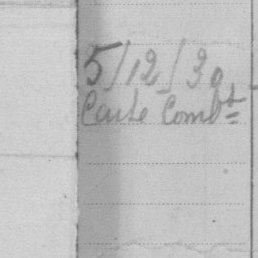 5/12/30
Carte Combt